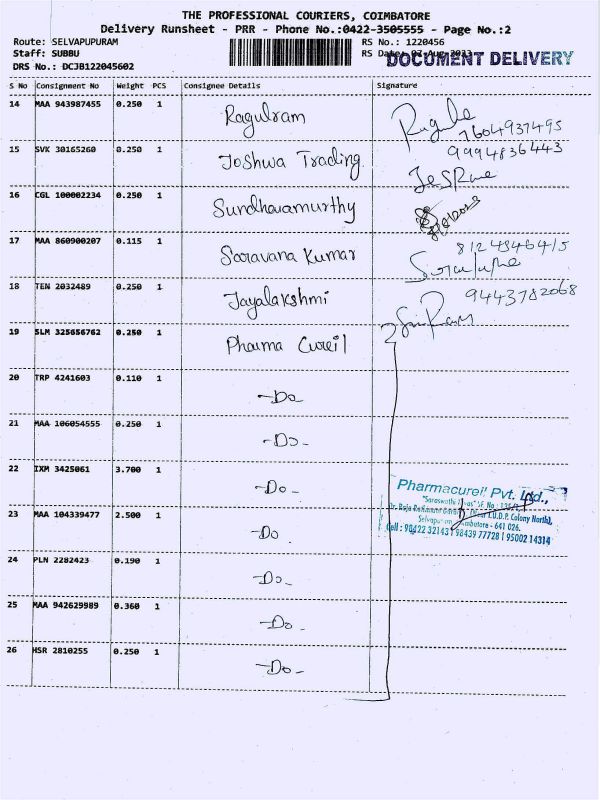 THE PROFESSIONAL COURIERS, COIMBATORE
Delivery Runsheet - PRR - Phone No.:0422-3505555 - Page No.:2
Route: SELVAPUPURAM RS No.: 1220456
Staff: SUBBU RS Date: 07-Aug-2023
DOCUMENT DELIVERY
DRS No.: DCJB122045602
S No Consignment No Weight PCS Consignee Details Signature
14 MAA 943987455 0.250 1 Ragulram
7604937495
15 SVK 30165260 0.250 1 Joshwa Trading 9994836443
16 CGL 100002234 0.250 1 Sundhavamurthy
17 MAA 860900207 0.115 1 Saravana Kumar 8124346415
18 TEN 2032489 0.250 1 Jayalakshmi 9443782068
19 SLM 325656762 0.250 1 Pharma Cureil
20 TRP 4241603 0.110 1 -Do
21 MAA 106054555 0.250 1 -Do-
22 IXM 3425061 3.700 1 -Do-
Pharmacureil Pvt. Ltd.,
23 MAA 104339477 2.500 1 -Do
Colony North),
Selvapuram, Coimbatore - 641 026.
Cell : 98422 32143 | 98439 77728 | 95002 14314
24 PLN 2282423 0.190 1 -Do-
25 MAA 942629989 0.360 1 -Do-
26 HSR 2810255 0.250 1 -Do-